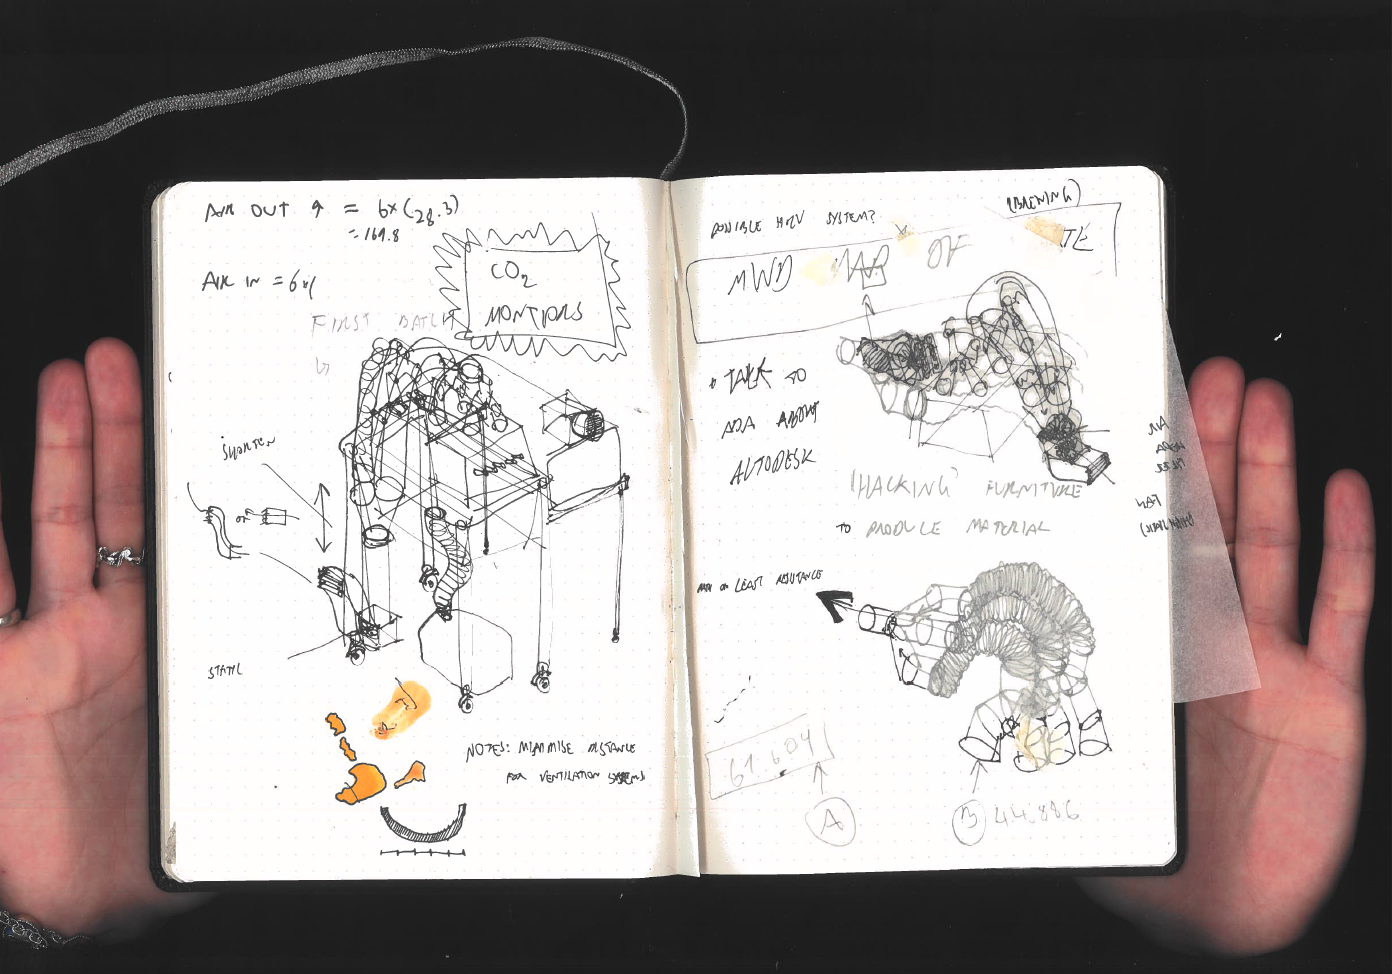 AIR OUT ↑ = 6x(28.3)
= 169.8
AIR IN = 6x
CO2
MONITORS
FIRST BATCH
SHORTEN
or
STATIC
NOTES: MINIMISE DISTANCE
FOR VENTILATION SYSTEMS
POSSIBLE SYSTEM?
(BREWING)
MWD OF
TALK TO
ADA ABOUT
AUTODESK
'HACKING' FURNITURE
TO PRODUCE MATERIAL
PATH OF LEAST RESISTANCE
61.604
A
B 44.886